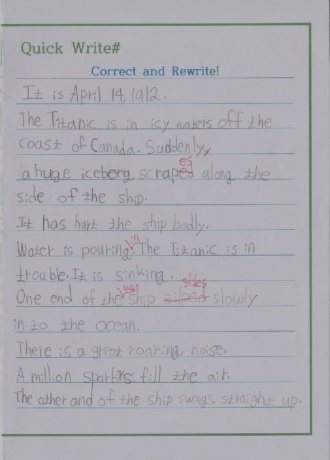 Quick Write#
Correct and Rewrite!
It is April 14, 1912.
The Titanic is in icy waters off the
coast of Canada. Suddenly,
es
a huge iceberg scraped along the
side of the ship.
It has hurt the ship badly.
in
Water is pouring. The Titanic is in
trouble. It is sinking.
huge slides
One end of the ship sliped slowly
in to the ocean.
There is a great roaring noise.
A million sparks fill the air.
The other and of the ship swings straight up.